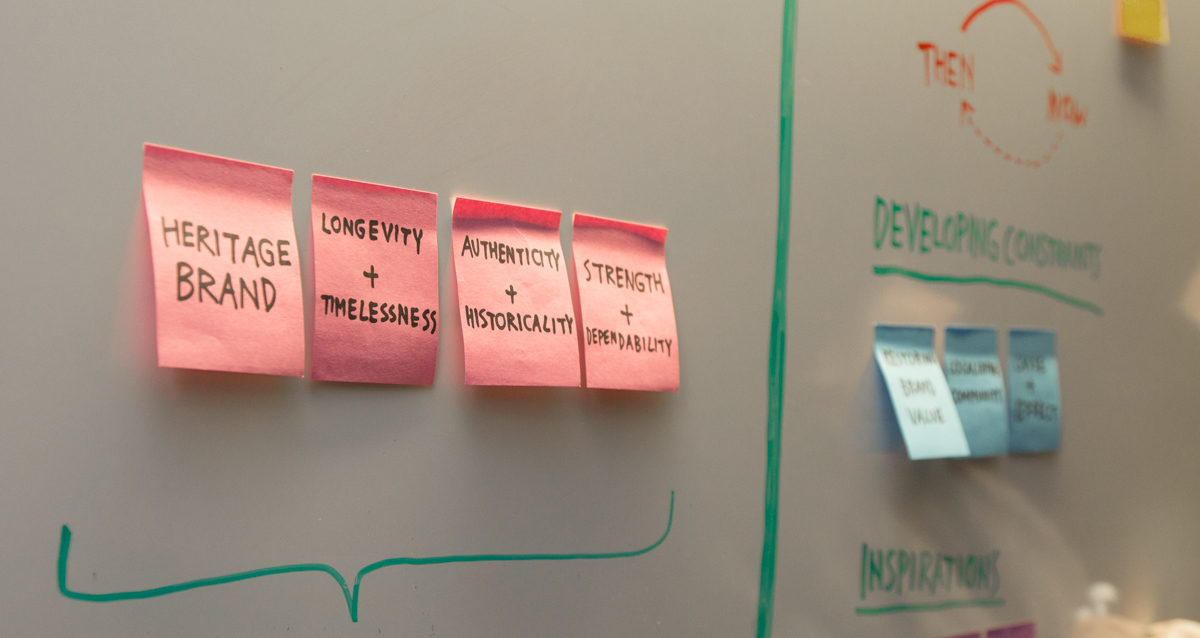 HERITAGE
BRAND
LONGEVITY
+
TIMELESSNESS
AUTHENTICITY
+
HISTORICALITY
STRENGTH
+
DEPENDABILITY
THEN
NOW
DEVELOPING CONSTRAINTS
RESTORING
BRAND
VALUE
COMMUNITY
INSPIRATIONS